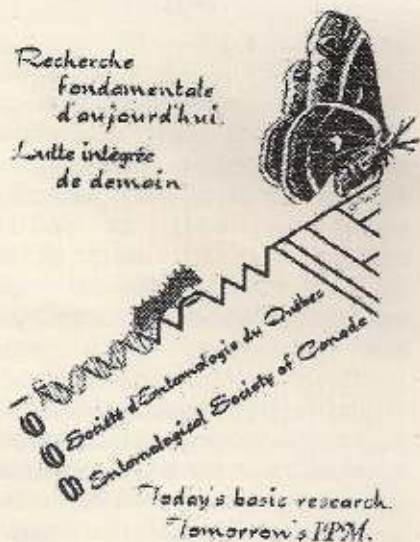 Recherche
fondamentale
d'aujourd'hui.
Lutte intégrée
de demain
Société d'Entomologie du Québec
Entomological Society of Canada
Today's basic research.
Tomorrow's IPM.